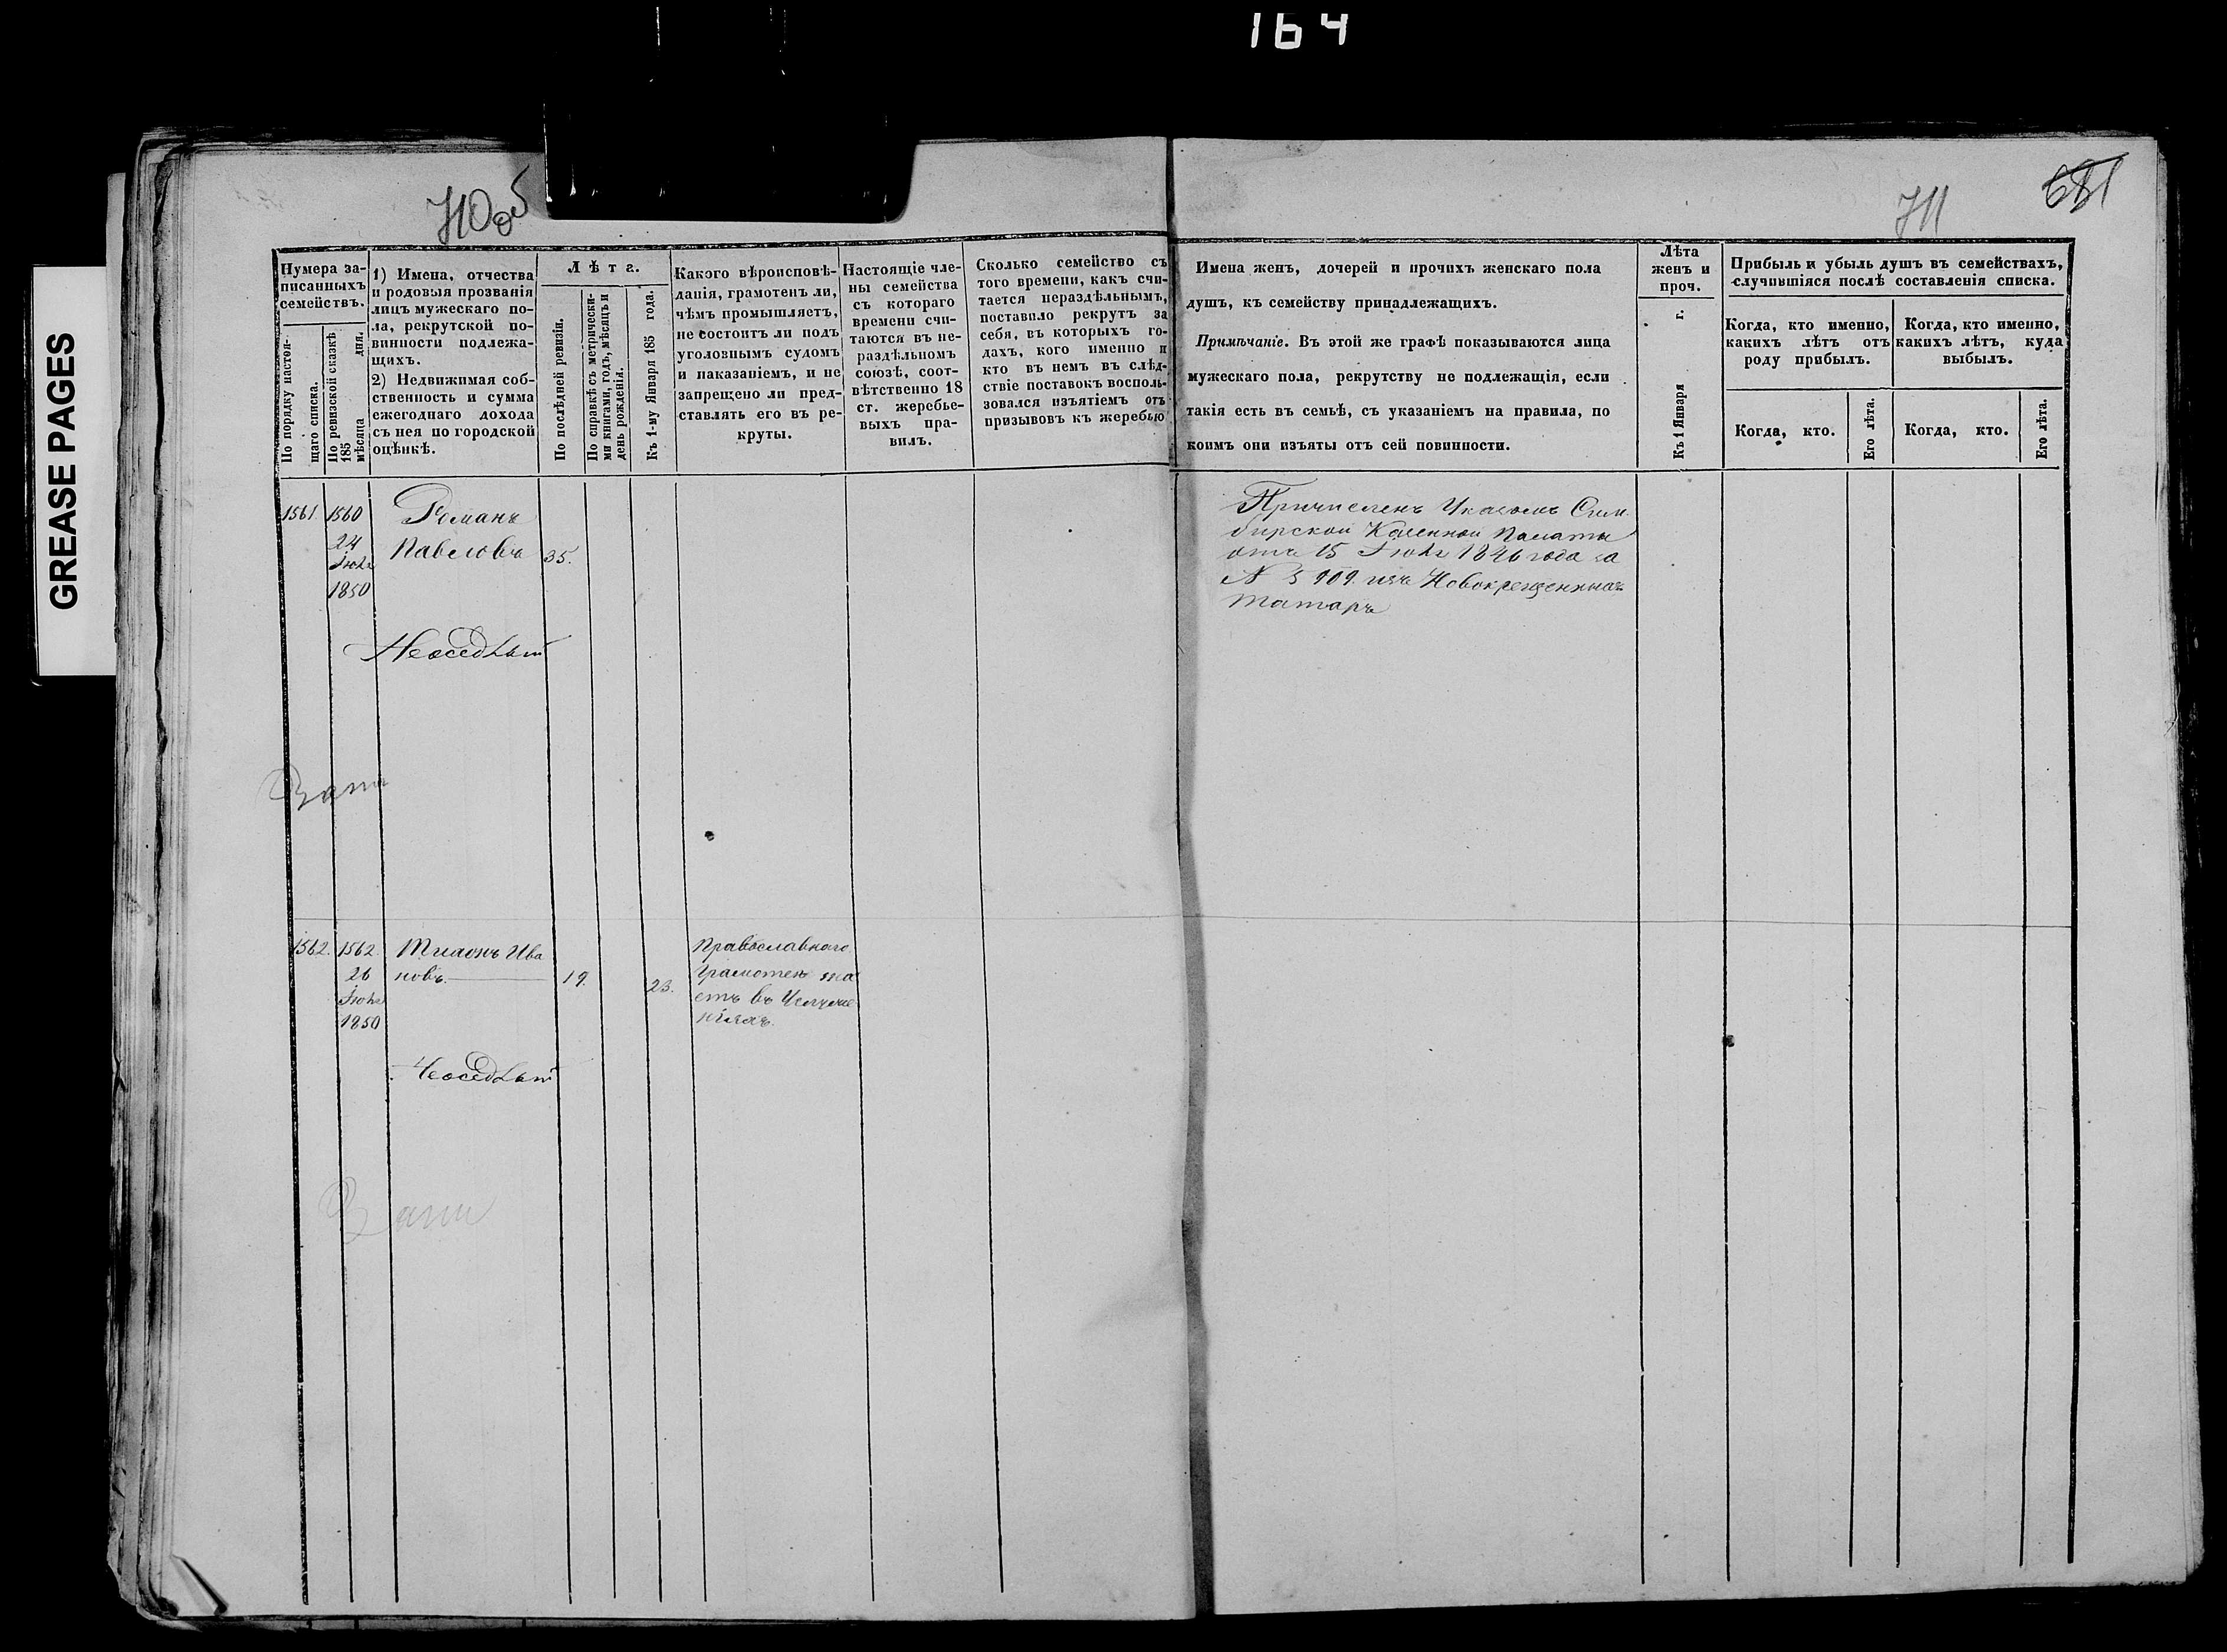 164
GREASE PAGES
710об
711
681
Нумера за-
писанныхъ
семействъ.
По порядку настоя-
щаго списка.
По ревизской сказкѣ
185
мѣсяца дня.
1) Имена, отчества
и родовыя прозванія
лицъ мужескаго по-
ла, рекрутской по-
винности подлежа-
щихъ.
2) Недвижимая соб-
ственность и сумма
ежегоднаго дохода
съ нея по городской
оцѣнкѣ.
Лѣта.
По послѣдней ревизіи.
По справкѣ съ метрически-
ми книгами, годъ, мѣсяцъ и
день рожденія.
Къ 1-му Января 185 года.
Какого вѣроисповѣ-
данія, грамотенъ ли,
чѣмъ промышляетъ,
не состоитъ ли подъ
уголовнымъ судомъ
и наказаніемъ, и не
запрещено ли пред-
ставлять его въ ре-
круты.
Настоящіе чле-
ны семейства
съ котораго
времени счи-
таются въ не-
раздѣльномъ
союзѣ, соот-
вѣтственно 18
ст. жеребье-
выхъ пра-
вилъ.
Сколько семейство съ
того времени, какъ счи-
тается нераздѣльнымъ,
поставило рекрутъ за
себя, въ которыхъ го-
дахъ, кого именно и
кто въ немъ въ слѣд-
ствіе поставокъ восполь-
зовался изъятіемъ отъ
призывовъ къ жеребью
Имена женъ, дочерей и прочихъ женскаго пола
душъ, къ семейству принадлежащихъ.
Примѣчаніе. Въ этой же графѣ показываются лица
мужескаго пола, рекрутству не подлежащія, если
такія есть въ семьѣ, съ указаніемъ на правила, по
коимъ они изъяты отъ сей повинности.
Лѣта
женъ и
проч.
Къ 1 Января г.
Прибыль и убыль душъ въ семействахъ,
случившіяся послѣ составленія списка.
Когда, кто именно,
какихъ лѣтъ отъ
роду прибылъ.
Когда, кто именно,
какихъ лѣтъ, куда
выбылъ.
Когда, кто.
Его лѣта.
Когда, кто.
Его лѣта.
1561. 1560
24
Іюня
1850
Романъ
Павловъ 35.
Причисленъ Указомъ Сим
бирской Казенной Палаты
отъ 15 1846 года за
N 5909. изъ Новокрещенныхъ
Татаръ
1562. 1562
26
Іюня
1850
Ива
новъ. 19. 23.
Православнаго
Грамотен
етъ въ